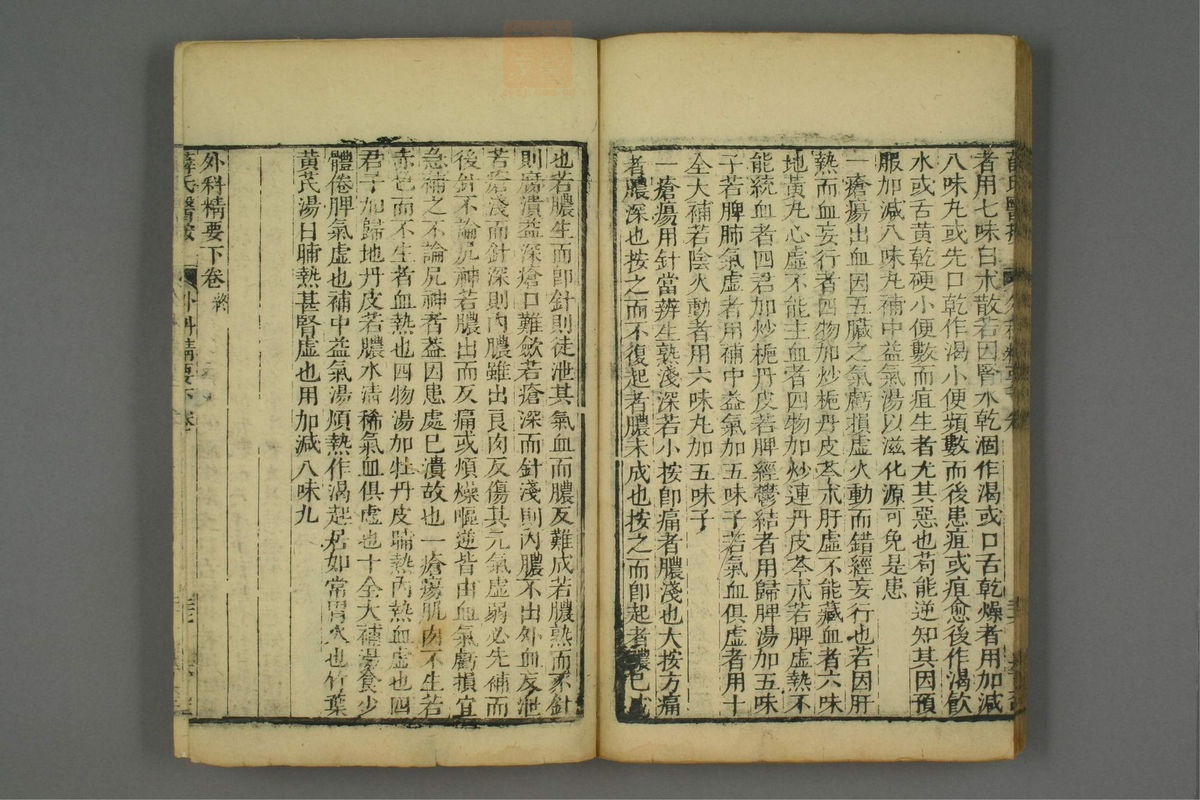 者用七味白朮散若因腎水乾涸作渴或口舌乾燥者用加減
八味丸或先口乾作渴小便頻數而後患疽或疽愈後作渴飲
水或舌黃乾硬小便數而疽生者尤其惡也苟能逆知其因預
服加減八味丸補中益氣湯以滋化源可免是患
一瘡瘍出血因五臟之氣虧損虛火動而錯經妄行也若因肝
熱而血妄行者四物加炒梔丹皮苓朮肝虛不能藏血者六味
地黃丸心虛不能主血者四物加炒連丹皮苓朮若脾虛熱不
能統血者四君加炒梔丹皮若脾經鬱結者用歸脾湯加五味
子若脾肺氣虛者用補中益氣加五味子若氣血俱虛者用十
全大補若陰火動者用六味丸加五味子
一瘡瘍用針當辨生熟淺深若小按卽痛者膿淺也大按方痛
者膿深也按之而不復起者膿未成也按之而卽起者膿已成
也若膿生而卽針則徒泄其氣血而膿反難成若膿熟而不針
則腐潰益深瘡口難斂若瘡深而針淺則內膿不出外血反泄
若瘡淺而針深則內膿雖出良肉反傷其元氣虛弱必先補而
後針不論尻神若膿出而反痛或煩燥嘔逆皆由血氣虧損宜
急補之不論尻神者葢因患處已潰故也一瘡瘍肌肉不生若
赤色而不生者血熱也四物湯加牡丹皮晡熱內熱血虛也四
君子加歸地丹皮若膿水清稀氣血俱虛也十全大補湯食少
體倦脾氣虛也補中益氣湯煩熱作渴起居如常胃火也竹葉
黃芪湯日晡熱甚腎虛也用加減八味丸
外科精要下卷終
薛氏醫按 外科精要下卷